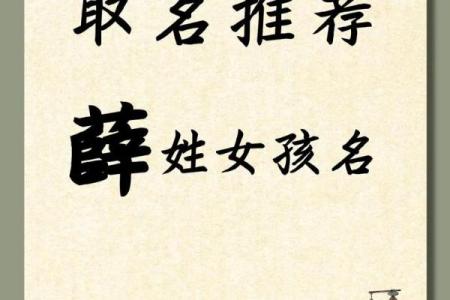 取名推荐
薛姓女孩名